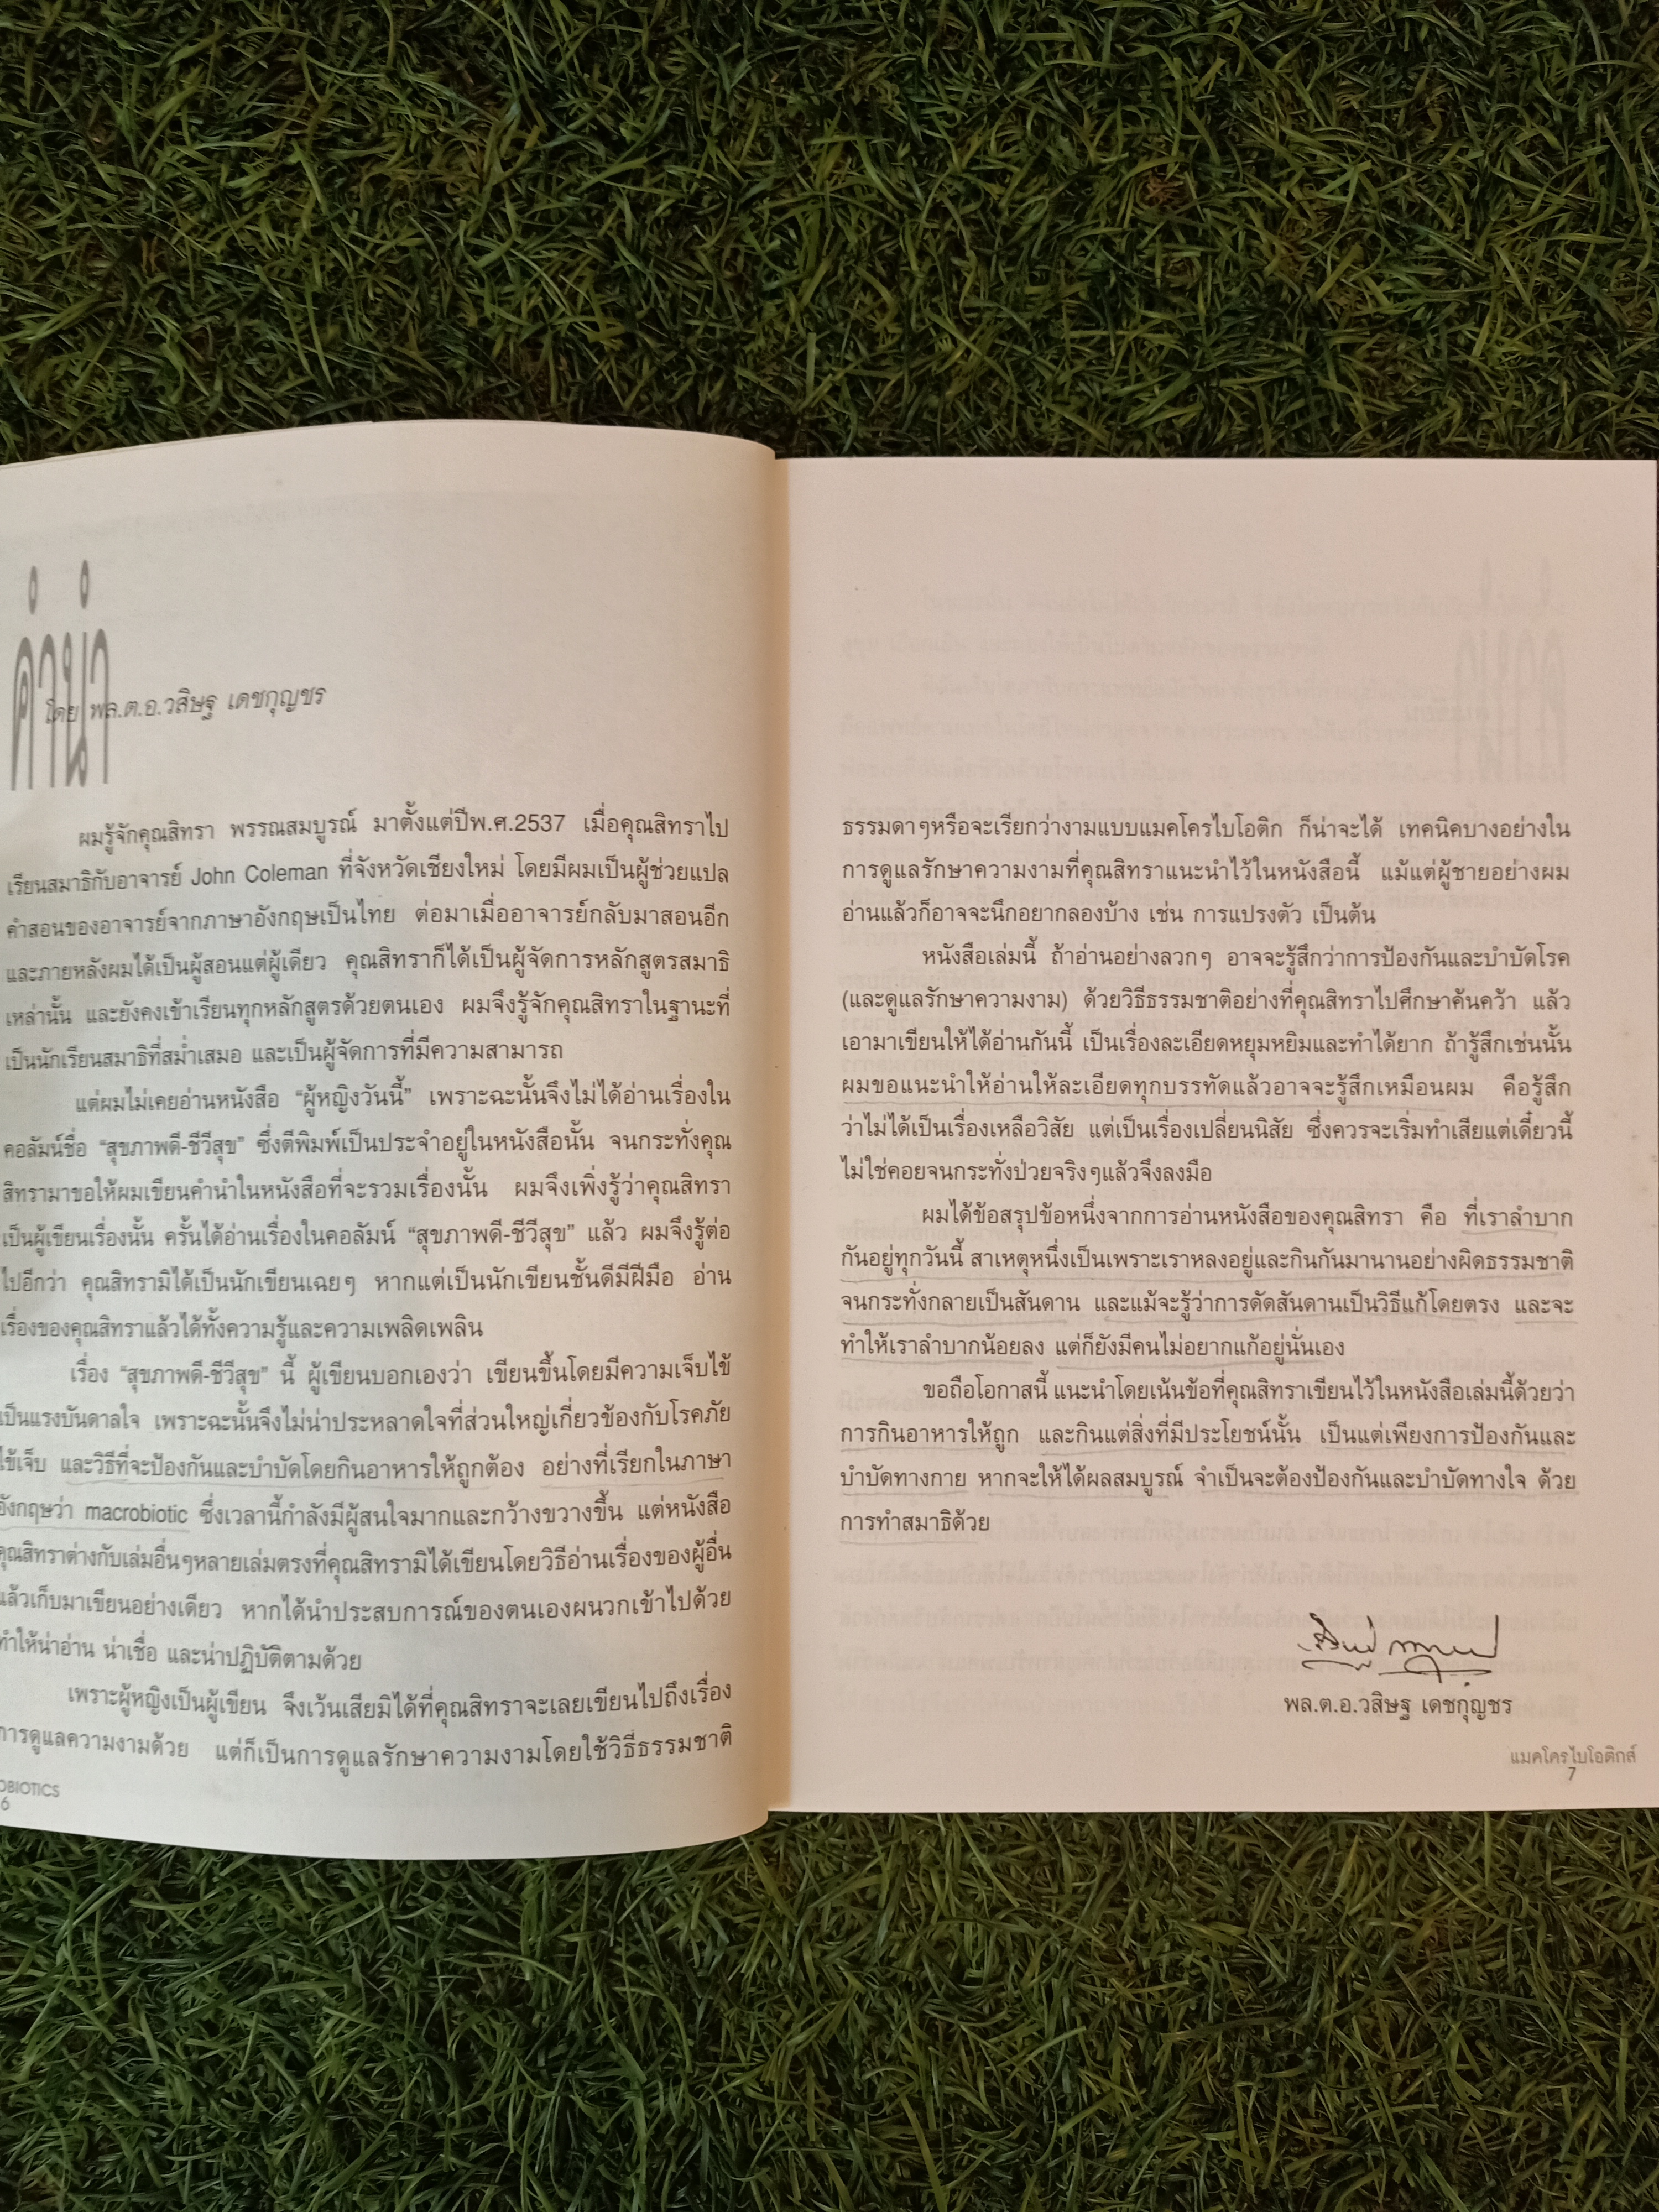 คำนำ
โดย พล.ต.อ.วสิษฐ เดชกุญชร
ผมรู้จักคุณสิทรา พรรณสมบูรณ์ มาตั้งแต่ปีพ.ศ.2537 เมื่อคุณสิทราไป
เรียนสมาธิกับอาจารย์ John Coleman ที่จังหวัดเชียงใหม่ โดยมีผมเป็นผู้ช่วยแปล
คำสอนของอาจารย์จากภาษาอังกฤษเป็นไทย ต่อมาเมื่ออาจารย์กลับมาสอนอีก
และภายหลังผมได้เป็นผู้สอนแต่ผู้เดียว คุณสิทราก็ได้เป็นผู้จัดการหลักสูตรสมาธิ
เหล่านั้น และยังคงเข้าเรียนทุกหลักสูตรด้วยตนเอง ผมจึงรู้จักคุณสิทราในฐานะที่
เป็นนักเรียนสมาธิที่สม่ำเสมอ และเป็นผู้จัดการที่มีความสามารถ
แต่ผมไม่เคยอ่านหนังสือ “ผู้หญิงวันนี้” เพราะฉะนั้นจึงไม่ได้อ่านเรื่องใน
คอลัมน์ชื่อ “สุขภาพดี-ชีวีสุข” ซึ่งตีพิมพ์เป็นประจำอยู่ในหนังสือนั้น จนกระทั่งคุณ
สิทรามาขอให้ผมเขียนคำนำในหนังสือที่จะรวมเรื่องนั้น ผมจึงเพิ่งรู้ว่าคุณสิทรา
เป็นผู้เขียนเรื่องนั้น ครั้นได้อ่านเรื่องในคอลัมน์ “สุขภาพดี-ชีวีสุข” แล้ว ผมจึงรู้ต่อ
ไปอีกว่า คุณสิทรามิได้เป็นนักเขียนเฉยๆ หากแต่เป็นนักเขียนชั้นดีมีฝีมือ อ่าน
เรื่องของคุณสิทราแล้วได้ทั้งความรู้และความเพลิดเพลิน
เรื่อง “สุขภาพดี-ชีวีสุข” นี้ ผู้เขียนบอกเองว่า เขียนขึ้นโดยมีความเจ็บไข้
เป็นแรงบันดาลใจ เพราะฉะนั้นจึงไม่น่าประหลาดใจที่ส่วนใหญ่เกี่ยวข้องกับโรคภัย
ไข้เจ็บ และวิธีที่จะป้องกันและบำบัดโดยกินอาหารให้ถูกต้อง อย่างที่เรียกในภาษา
อังกฤษว่า macrobiotic ซึ่งเวลานี้กำลังมีผู้สนใจมากและกว้างขวางขึ้น แต่หนังสือ
คุณสิทราต่างกับเล่มอื่นๆหลายเล่มตรงที่คุณสิทรามิได้เขียนโดยวิธีอ่านเรื่องของผู้อื่น
แล้วเก็บมาเขียนอย่างเดียว หากได้นำประสบการณ์ของตนเองผนวกเข้าไปด้วย
ทำให้น่าอ่าน น่าเชื่อ และน่าปฏิบัติตามด้วย
เพราะผู้หญิงเป็นผู้เขียน จึงเว้นเสียมิได้ที่คุณสิทราจะเลยเขียนไปถึงเรื่อง
การดูแลความงามด้วย แต่ก็เป็นการดูแลรักษาความงามโดยใช้วิธีธรรมชาติ
OBIOTICS
6
ธรรมดาๆหรือจะเรียกว่างามแบบแมคโครไบโอติก ก็น่าจะได้ เทคนิคบางอย่างใน
การดูแลรักษาความงามที่คุณสิทราแนะนำไว้ในหนังสือนี้ แม้แต่ผู้ชายอย่างผม
อ่านแล้วก็อาจจะนึกอยากลองบ้าง เช่น การแปรงตัว เป็นต้น
หนังสือเล่มนี้ ถ้าอ่านอย่างลวกๆ อาจจะรู้สึกว่าการป้องกันและบำบัดโรค
(และดูแลรักษาความงาม) ด้วยวิธีธรรมชาติอย่างที่คุณสิทราไปศึกษาค้นคว้า แล้ว
เอามาเขียนให้ได้อ่านกันนี้ เป็นเรื่องละเอียดหยุมหยิมและทำได้ยาก ถ้ารู้สึกเช่นนั้น
ผมขอแนะนำให้อ่านให้ละเอียดทุกบรรทัดแล้วอาจจะรู้สึกเหมือนผม คือรู้สึก
ว่าไม่ได้เป็นเรื่องเหลือวิสัย แต่เป็นเรื่องเปลี่ยนนิสัย ซึ่งควรจะเริ่มทำเสียแต่เดี๋ยวนี้
ไม่ใช่คอยจนกระทั่งป่วยจริงๆแล้วจึงลงมือ
ผมได้ข้อสรุปข้อหนึ่งจากการอ่านหนังสือของคุณสิทรา คือ ที่เราลำบาก
กันอยู่ทุกวันนี้ สาเหตุหนึ่งเป็นเพราะเราหลงอยู่และกินกันมานานอย่างผิดธรรมชาติ
จนกระทั่งกลายเป็นสันดาน และแม้จะรู้ว่าการดัดสันดานเป็นวิธีแก้โดยตรง และจะ
ทำให้เราลำบากน้อยลง แต่ก็ยังมีคนไม่อยากแก้อยู่นั่นเอง
ขอถือโอกาสนี้ แนะนำโดยเน้นข้อที่คุณสิทราเขียนไว้ในหนังสือเล่มนี้ด้วยว่า
การกินอาหารให้ถูก และกินแต่สิ่งที่มีประโยชน์นั้น เป็นแต่เพียงการป้องกันและ
บำบัดทางกาย หากจะให้ได้ผลสมบูรณ์ จำเป็นจะต้องป้องกันและบำบัดทางใจ ด้วย
การทำสมาธิด้วย
พล.ต.อ.วสิษฐ เดชกุญชร
แมคโครไบโอติกส์
7